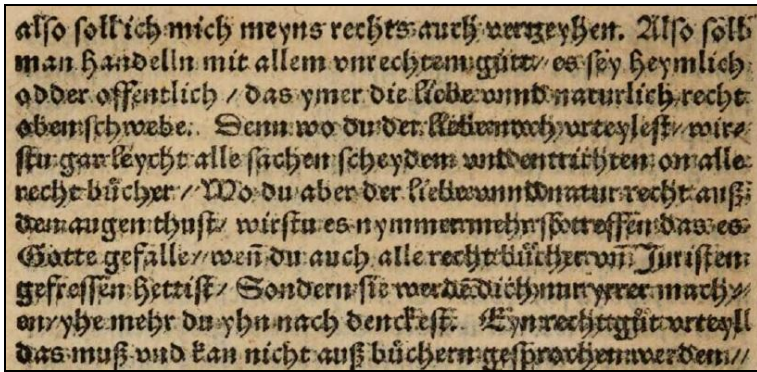 also soll ich mich meyns rechts auch vertzeyhen. Also soll
man handelln mit allem vnrechtem gůtt/ es sey heymlich
odder offentlich / das ymer die liebe vnnd naturlich recht
oben schwebe. Denn wo du der liebe noch vrteylest/ wir⸗
stu gar leycht alle sachen scheyden vnd entrichten on alle
recht bůcher / Wo du aber der liebe vnnd natur recht auß
den augen thust/ wirstu es nymmermehr so treffen das es
Gotte gefalle/ weñ du auch alle recht bůcher vñ Juristen
gefressen hettist/ Sondern sie werdẽ dich nur yrrer mach⸗
en/ yhe mehr du yhn nach denckest. Eyn recht gůt vrteyll
das muß vnd kan nicht auß bůchern gesprochen werden/